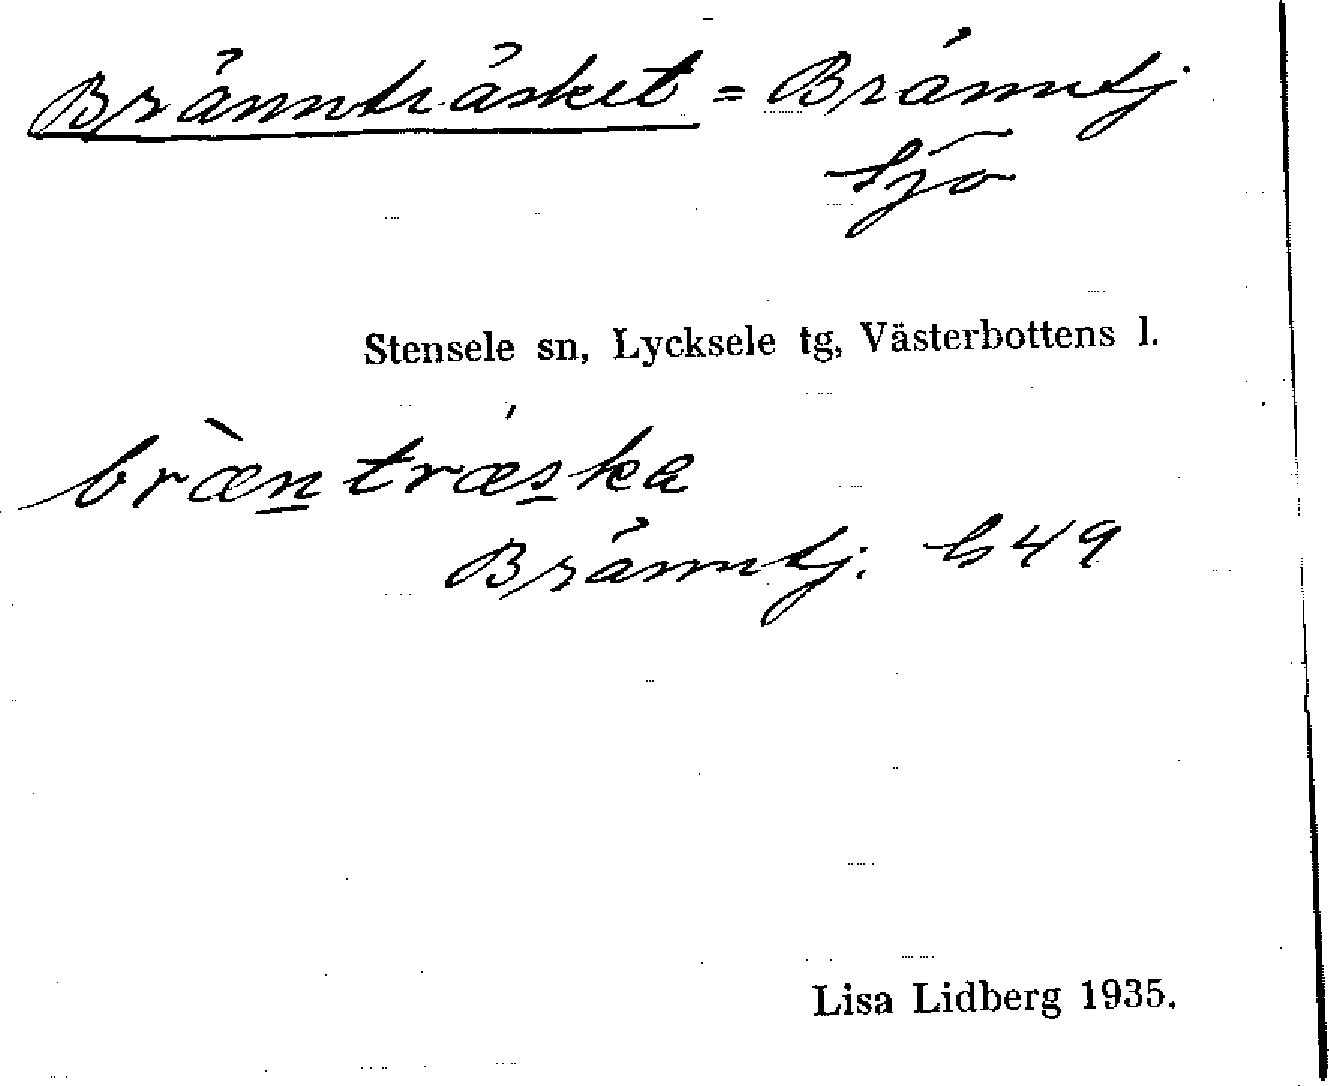 Brännträsket = Bränntj
sjö
Stensele sn, Lycksele tg, Västerbottens l.
bræ̀ntræ´ska
Bränntj. b 49
Lisa Lidberg 1935.